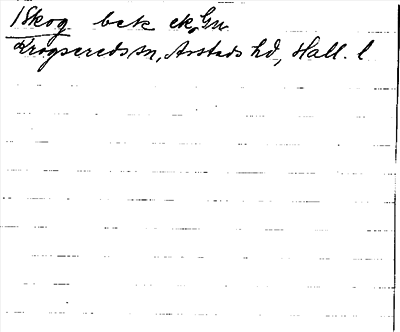 1Skog bek ek, Gn
Krogsereds sn, Årstads hd, Hall. l